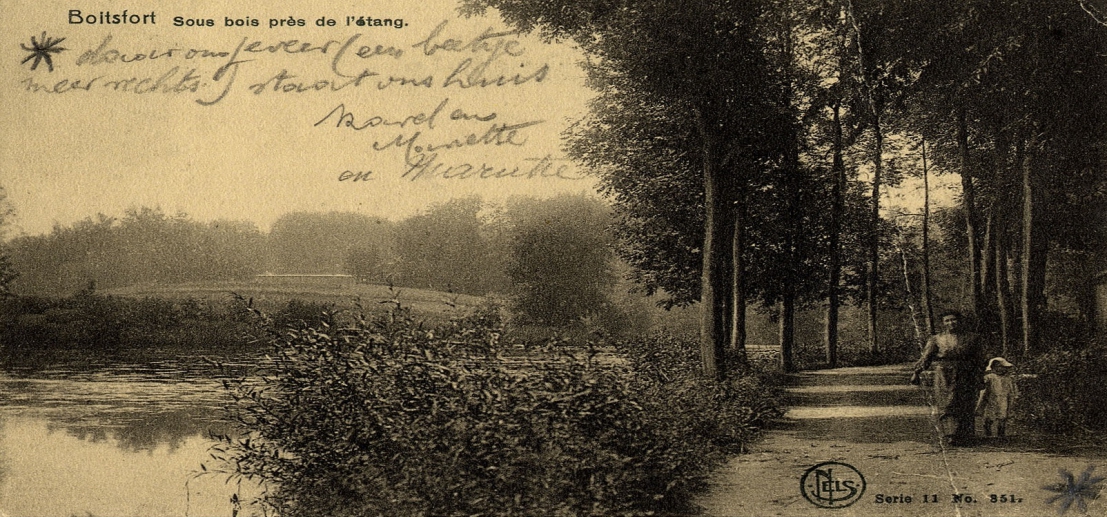 Boitsfort Sous bois près de l'étang.
een beetje
meer rechts) staat ons huis
Karel en
Mariette
en
NELS
Serie 11 No. 351.